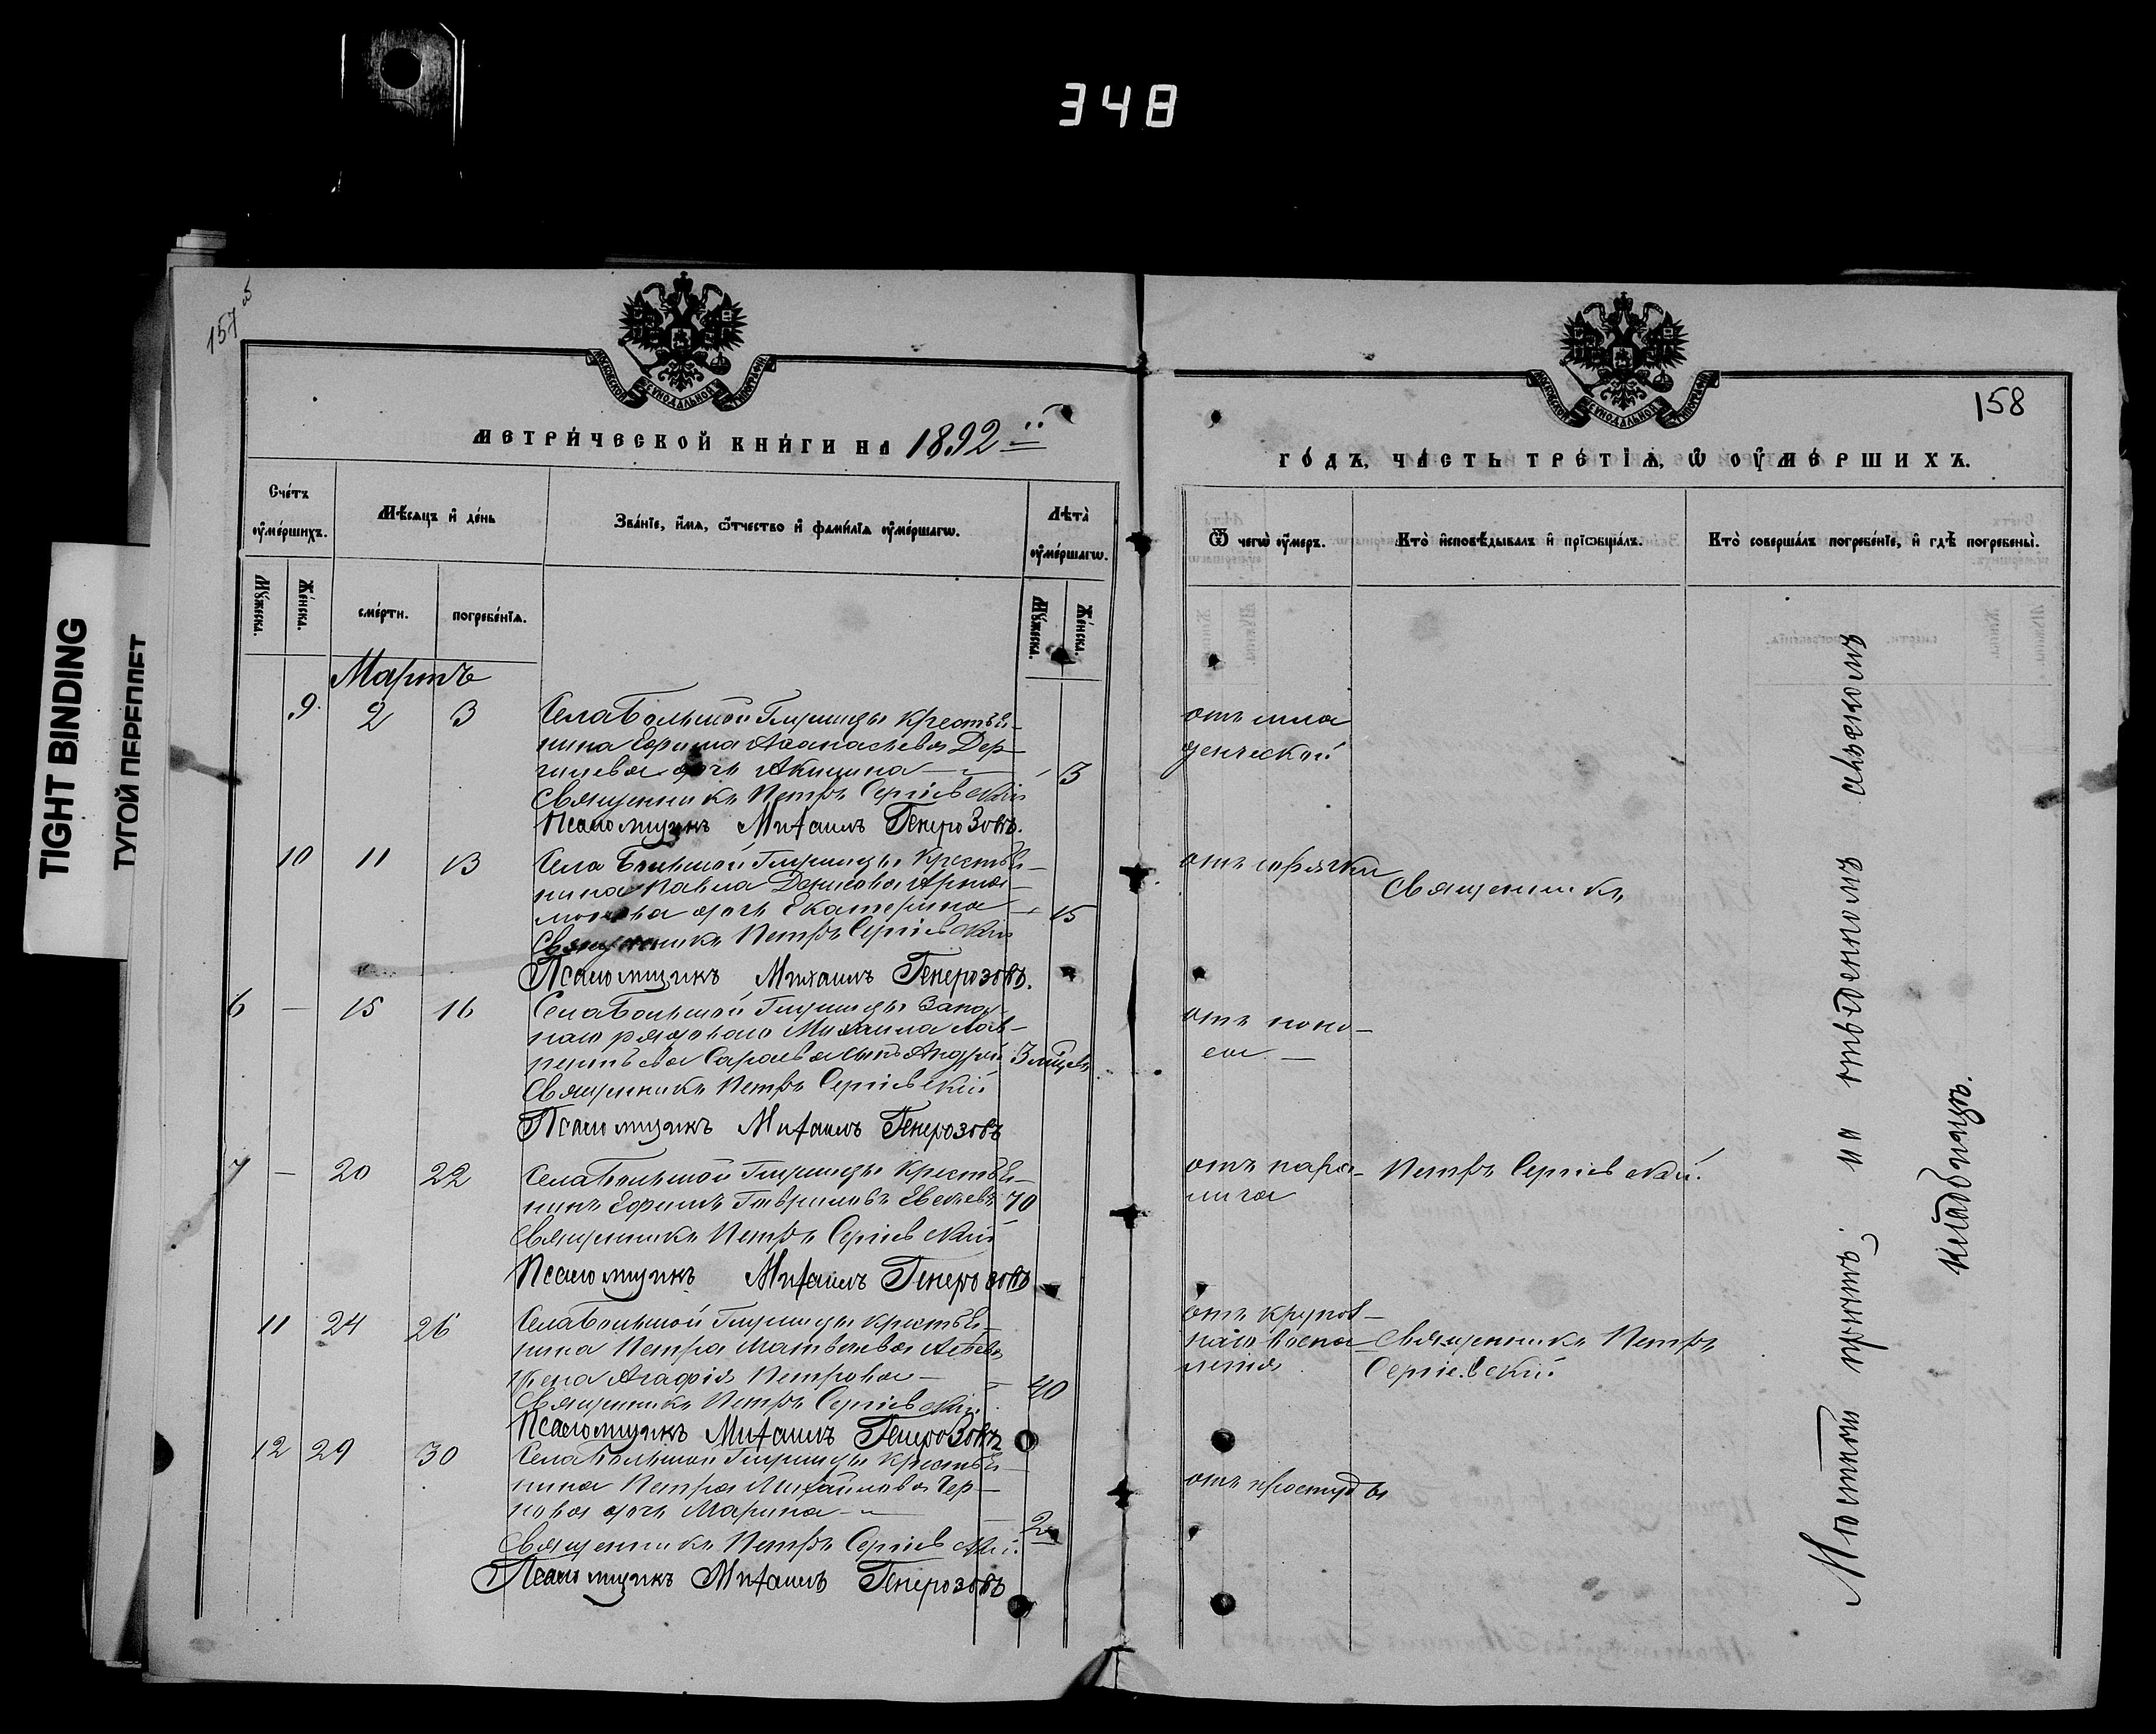 348
TIGHT BINDING
ТУГОЙ ПЕРЕПЛЕТ
157 об
МОСКОВСКОЙ СѴНОДАЛЬНОЙ ТИПОГРАФІИ
МЕТРИ́ЧЕСКОЙ КНИ́ГИ НА 1892 й
Сче́тъ ᲂу҆ме́ршихъ.
Мѣ́сяцъ и҆ де́нь
Зва́нїе, и҆́мя, ѻ҆́тчество и҆ фами́лїя ᲂу҆ме́ршагѡ.
Лѣта̀ ᲂу҆ме́ршагѡ.
Мꙋ́жеска.
Же́нска.
сме́рти.
погребе́нїя.
Мꙋ́жеска.
Же́нска.
Мартъ
9. 2 3 Села Большой Глушицы крестья-
нина Ефима Аѳанасьева Дер-
дочь Акилина — 3
Священникъ Петръ Сергіевскій
Псаломщикъ Михаилъ Генерозовъ.
10 11 13 Села Большой Глушицы Крестья-
нина Павла Денисова Арта-
монова дочь Екатерина — 15
Священникъ Петръ Сергіевскій
Псаломщикъ Михаилъ Генерозовъ.
6 — 15 16 Села Большой Глушицы Запас-
наго рядоваго Михаила Лав-
рентьева Сараева сынъ Андрей 3 мѣсяц.
Священникъ Петръ Сергіевскій
Псаломщикъ Михаилъ Генерозовъ
7 — 20 22 Села Большой Глушицы Крестья-
нинъ Ефимъ Гавриловъ 70
Священникъ Петръ Сергіевскій
Псаломщикъ Михаилъ Генерозовъ
11 24 26 Села Большой Глушицы крестья-
нина Петра Матвѣева
жена Агафія Петрова — 40
Священникъ Петръ Сергіевскій
Псаломщикъ Михаилъ Генерозовъ
12 29 30 Села Большой Глушицы Крестья-
нина Петра Михайлова Чер-
нова дочь Марина — 2
Священникъ Петръ Сергіевскій.
Псаломщикъ Михаилъ Генерозовъ
МОСКОВСКОЙ СѴНОДАЛЬНОЙ ТИПОГРАФІИ
158
ГО́ДЪ, ЧА́СТЬ ТРЕ́ТІѦ, Ѽ ОУ҆МЕ́РШИХЪ.
Ѿ чегѡ̀ ᲂу҆́меръ.
Кто̀ и҆сповѣ́дывалъ и҆ прїѡбща́лъ.
Кто̀ соверша́лъ погребе́нїе, и҆ гдѣ̀ погребены̀.
отъ мла
денческой
отъ горячки
Священникъ
отъ поно-
са —
отъ пара-
лича
Петръ Сергіевскій.
отъ крупоз-
наго воспа
ленія
Священникъ Петръ
Сергіевскій.
отъ простуды
Мѣстный причтъ; на отведенномъ сельскомъ
кладбищѣ.